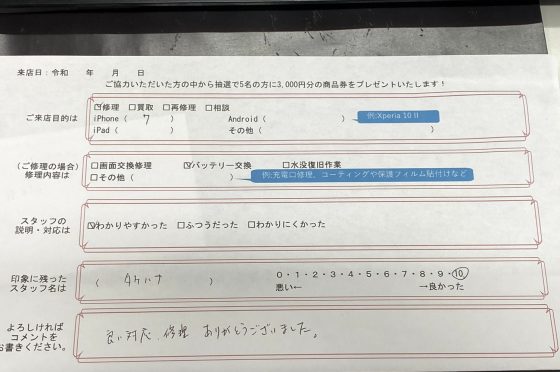 来店日：令和　年　月　日
ご協力いただいた方の中から抽選で5名の方に3,000円分の商品券をプレゼントいたします！
ご来店目的は
☑修理 □買取 □再修理 □相談
iPhone ( 7 ) Android ( ) 例:Xperia 10 II
iPad ( ) その他 ( )
(ご修理の場合)
修理内容は
□画面交換修理 ☑バッテリー交換 □水没復旧作業
□その他 ( ) 例:充電口修理、コーティングや保護フィルム貼付けなど
スタッフの
説明・対応は
☑わかりやすかった □ふつうだった □わかりにくかった
印象に残った
スタッフ名は
( タケハナ )
0・1・2・3・4・5・6・7・8・9・10
悪い← →良かった
よろしければ
コメントを
お書きください。
良い対応、修理 ありがとうございました。